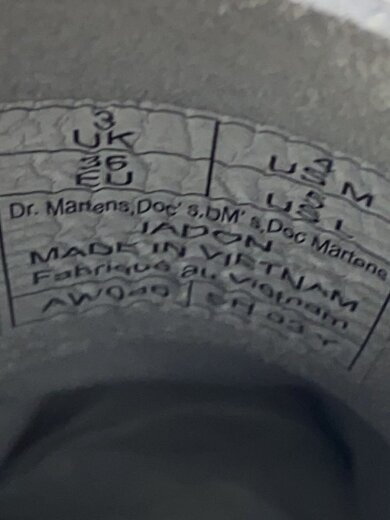 3 UK
4 US M
36 EU
5 US L
Dr. Martens,Doc's,DM's,Doc Martens
JADON
MADE IN VIETNAM
Fabriqué au Vietnam